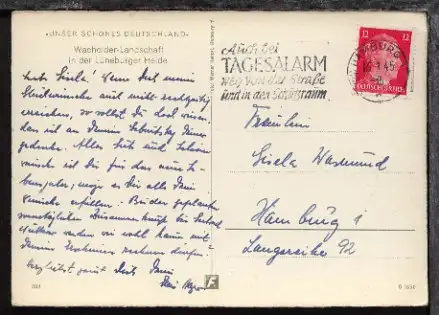 »UNSER SCHÖNES DEUTSCHLAND«
Wacholder-Landschaft
in der Lüneburger Heide
Liebe Gisela! Wenn Dich meine
Glückwünsche auch nicht rechtzeitig
erreichen, so sollst Du doch wissen,
dass ich an Deinem Geburtstag Deiner
gedenke. Alles Gute und Schöne
wünsche ich Dir für das neue Le-
bensjahr, möge es Dir alle Deine
Wünsche erfüllen. Bei der geplanten
Zusammenkunft bei
werden wir wohl kaum mit
Deinem Erscheinen rechnen dürfen.
Herzlichst grüßt Dich Deine
Auch bei
TAGESALARM
weg von der Straße
und in den Schutzraum
HAMBURG
1.45
12
12
DEUTSCHES REICH
Fräulein
Gisela Warmund
Hamburg 1
Langereihe 92
F